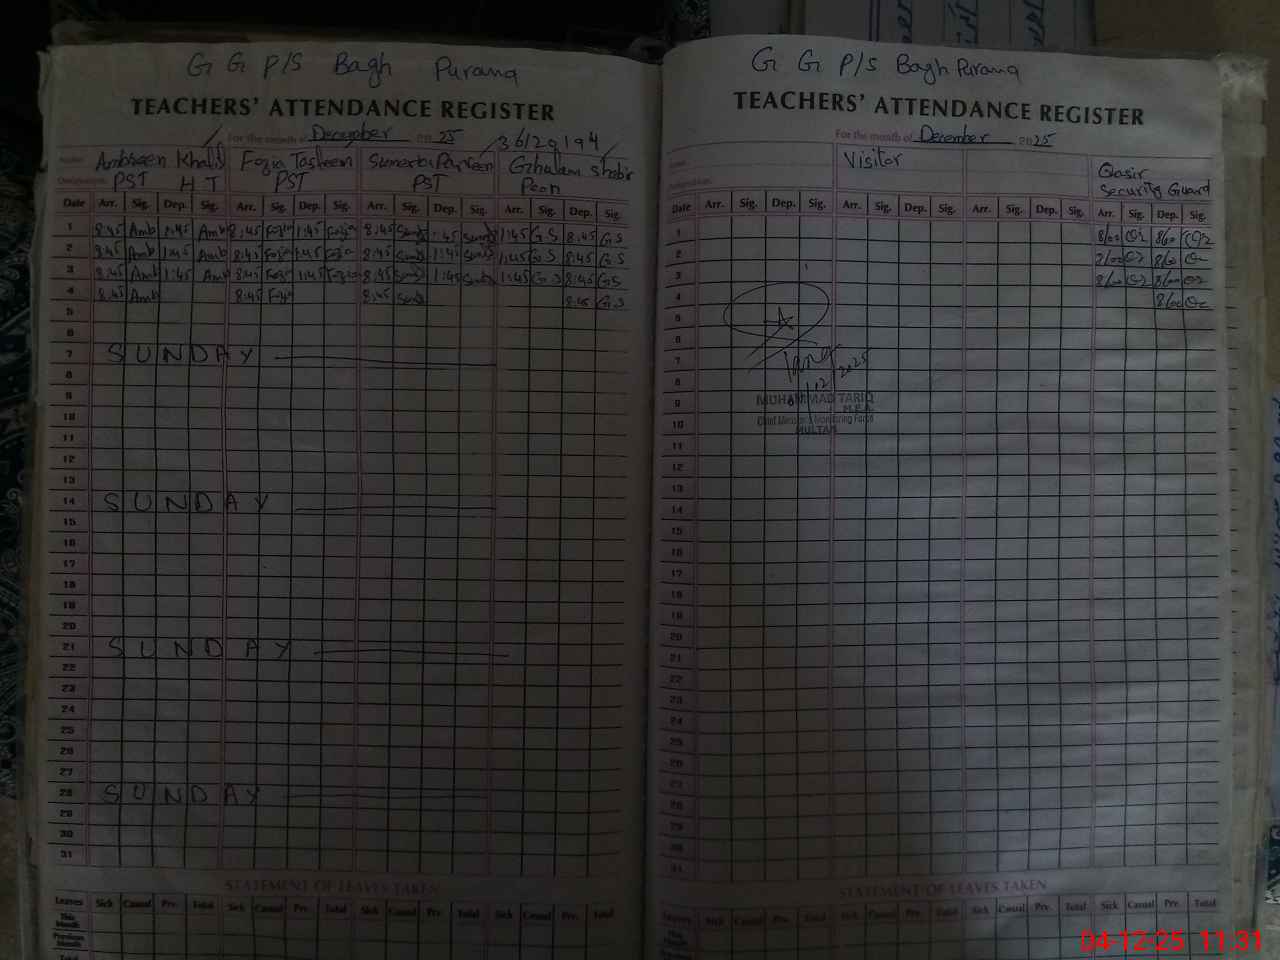 G G P/S Bagh Purana
TEACHERS' ATTENDANCE REGISTER
For the month of December 2025 36129194
Ambreen Khalil Fozia Tasleem Sumerba Parveen Ghulam Shabir
PST H T PST PST Peon
Date Arr. Sig. Dep. Sig. Arr. Sig. Dep. Sig. Arr. Sig. Dep. Sig. Arr. Sig. Dep. Sig.
1 8:45 Amb 1:45 Amb 8:45 Fozia 1:45 Fozia 8:45 1:45 1:45 G S 8:45 G S
2 8:45 Amb 1:45 Amb 8:45 Fozia 1:45 Fozia 8:45 1:45 1:45 G S 8:45 G S
3 8:45 Amb 1:45 Amb 8:45 Fozia 1:45 Fozia 8:45 1:45 1:45 G S 8:45 G S
4 8:45 Amb 8:45 Fozia 8:45 8:45 G S
5
6
7 SUNDAY
8
9
10
11
12
13
14 SUNDAY
15
16
17
18
19
20
21 SUNDAY
22
23
24
25
26
27
28 SUNDAY
29
30
31
STATEMENT OF LEAVES TAKEN
Leaves Sick Casual Prv. Total Sick Casual Prv. Total Sick Casual Prv. Total Sick Casual Prv. Total
This Month
Previous Month
Total
G G P/S Bagh Purana
TEACHERS' ATTENDANCE REGISTER
For the month of December 2025
Visitor Qasir
Security Guard
Date Arr. Sig. Dep. Sig. Arr. Sig. Dep. Sig. Arr. Sig. Dep. Sig. Arr. Sig. Dep. Sig.
1 8/00 8/00
2 8/00
3 8/00 8/00
4 8/00
5
6
7
8
9 MUHAMMAD TARIQ
M.E.A.
10 Chief Minister's Monitoring Force
MULTAN
11
12
13
14
15
16
17
18
19
20
21
22
23
24
25
26
27
28
29
30
31
STATEMENT OF LEAVES TAKEN
Leaves Sick Casual Prv. Total Sick Casual Prv. Total Sick Casual Prv. Total Sick Casual Prv. Total
This Month
Previous Month
04-12-25 11:31